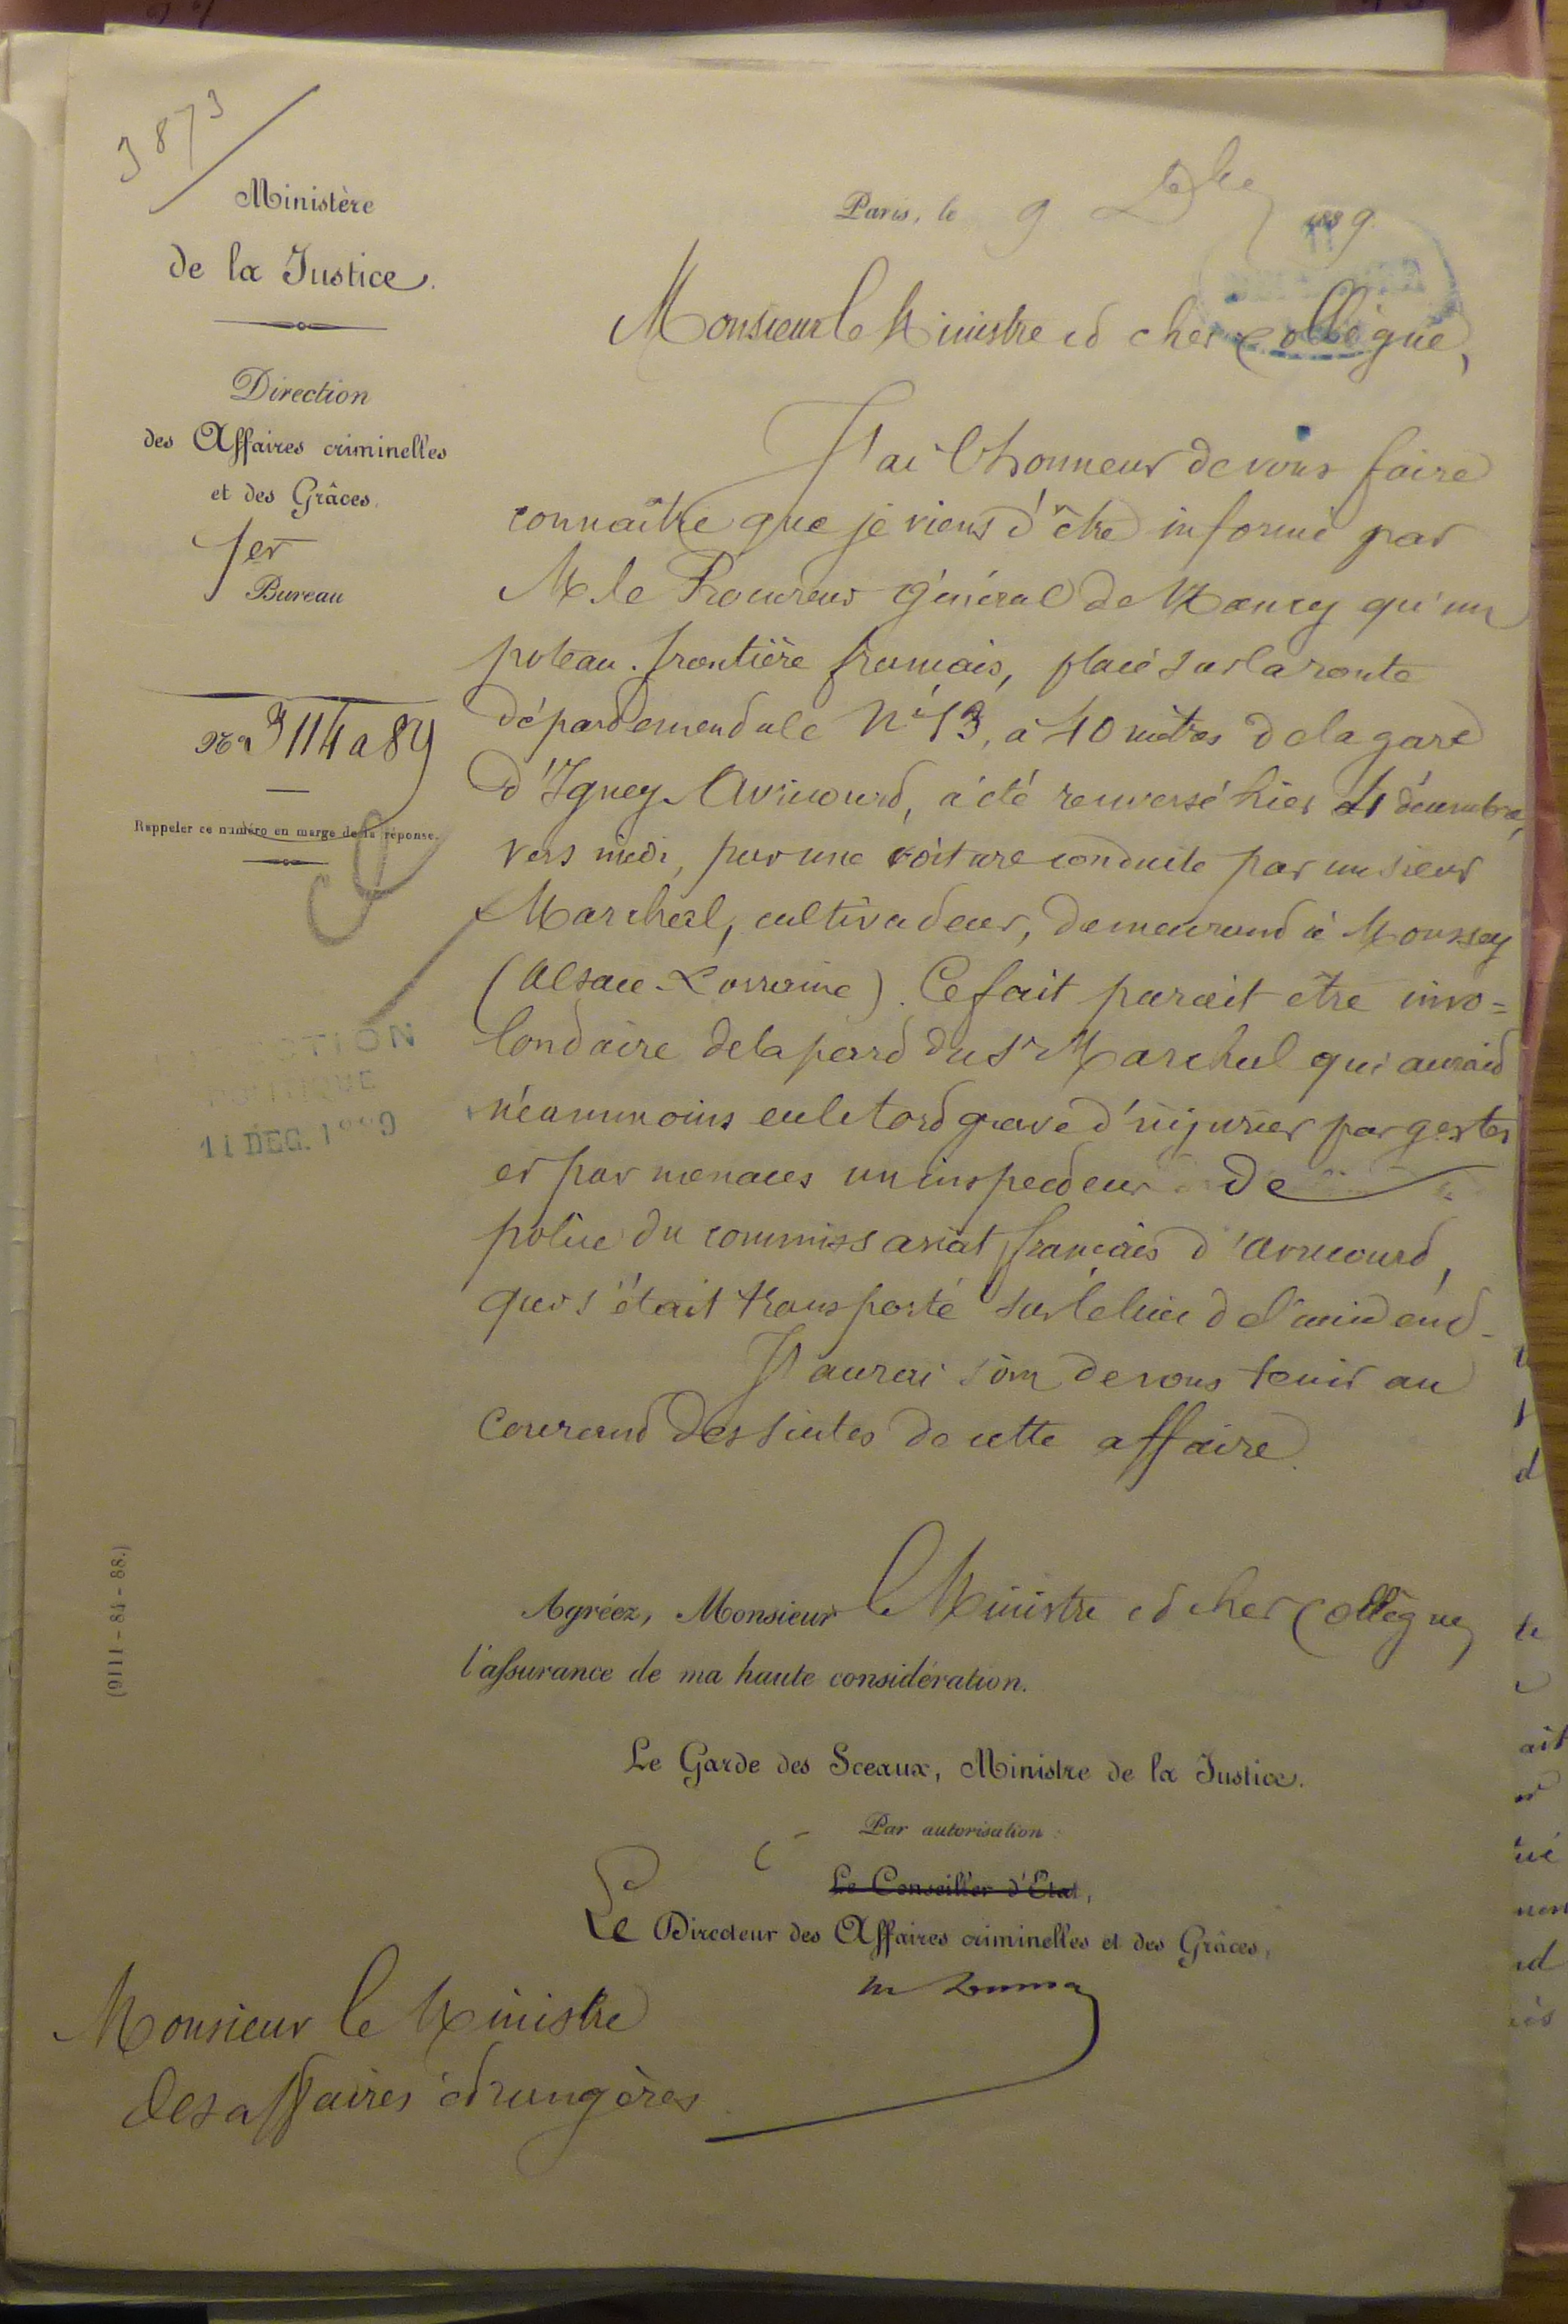 3873
Ministère
de la Justice.
Direction
des Affaires criminelles
et des Grâces.
1er
Bureau
No 3114 a 89
Rappeler ce numéro en marge de la réponse.
DIRECTION
POLITIQUE
11 DEC. 1889
(9111-84-88.)
Paris, le 9 Xbre 1889.
Monsieur le Ministre et cher Collègue,
J'ai l'honneur de vous faire
connaître que je viens d'être informé par
M. le Procureur Général de Nancy qu'un
poteau-frontière français, placé sur la route
départementale No 13, à 10 mètres de la gare
d'Igney-Avricourt, a été renversé hier 4 décembre,
vers midi, par une voiture conduite par un sieur
Marchal, cultivateur, demeurant à Moussey
(Alsace-Lorraine). Ce fait parait être invo=
lontaire de la part du Sr Marchal qui aurait
néanmoins eu le tort grave d'injurier par gestes
et par menaces un inspecteur de
police du commissariat français d'Avricourt,
qui s'était transporté sur le lieu de l'accident.
J'aurai soin de vous tenir au
courant des suites de cette affaire.
Agréez, Monsieur le Ministre et cher Collègue,
l'assurance de ma haute considération.
Le Garde des Sceaux, Ministre de la Justice.
Par autorisation :
Le Conseiller d'Etat,
Le Directeur des Affaires criminelles et des Grâces,
Monsieur le Ministre
des affaires étrangères